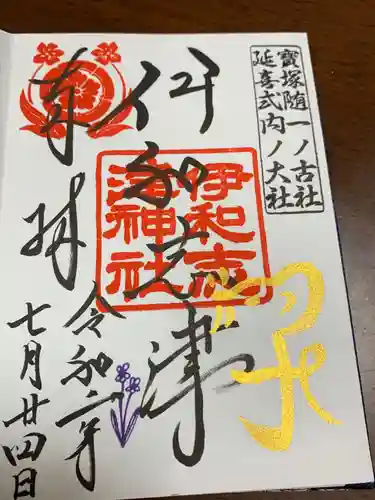 寶塚随一ノ古社
延喜式内ノ大社
伊和志津
伊和志
津神社
奉拝
令和二年
七月廿四日